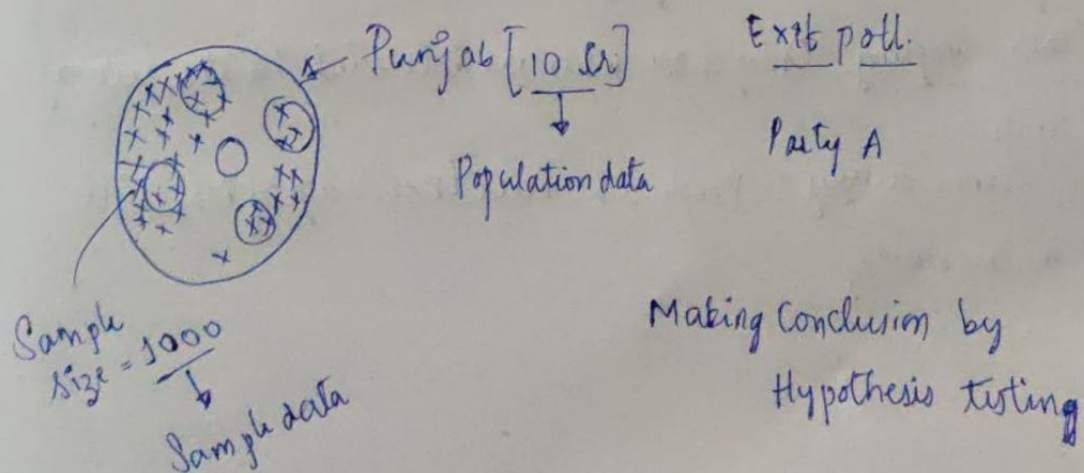 Punjab [10 Cr]
Population data
Exit poll.
Party A
Sample
size = 1000
Sample data
Making Conclusion by
Hypothesis testing